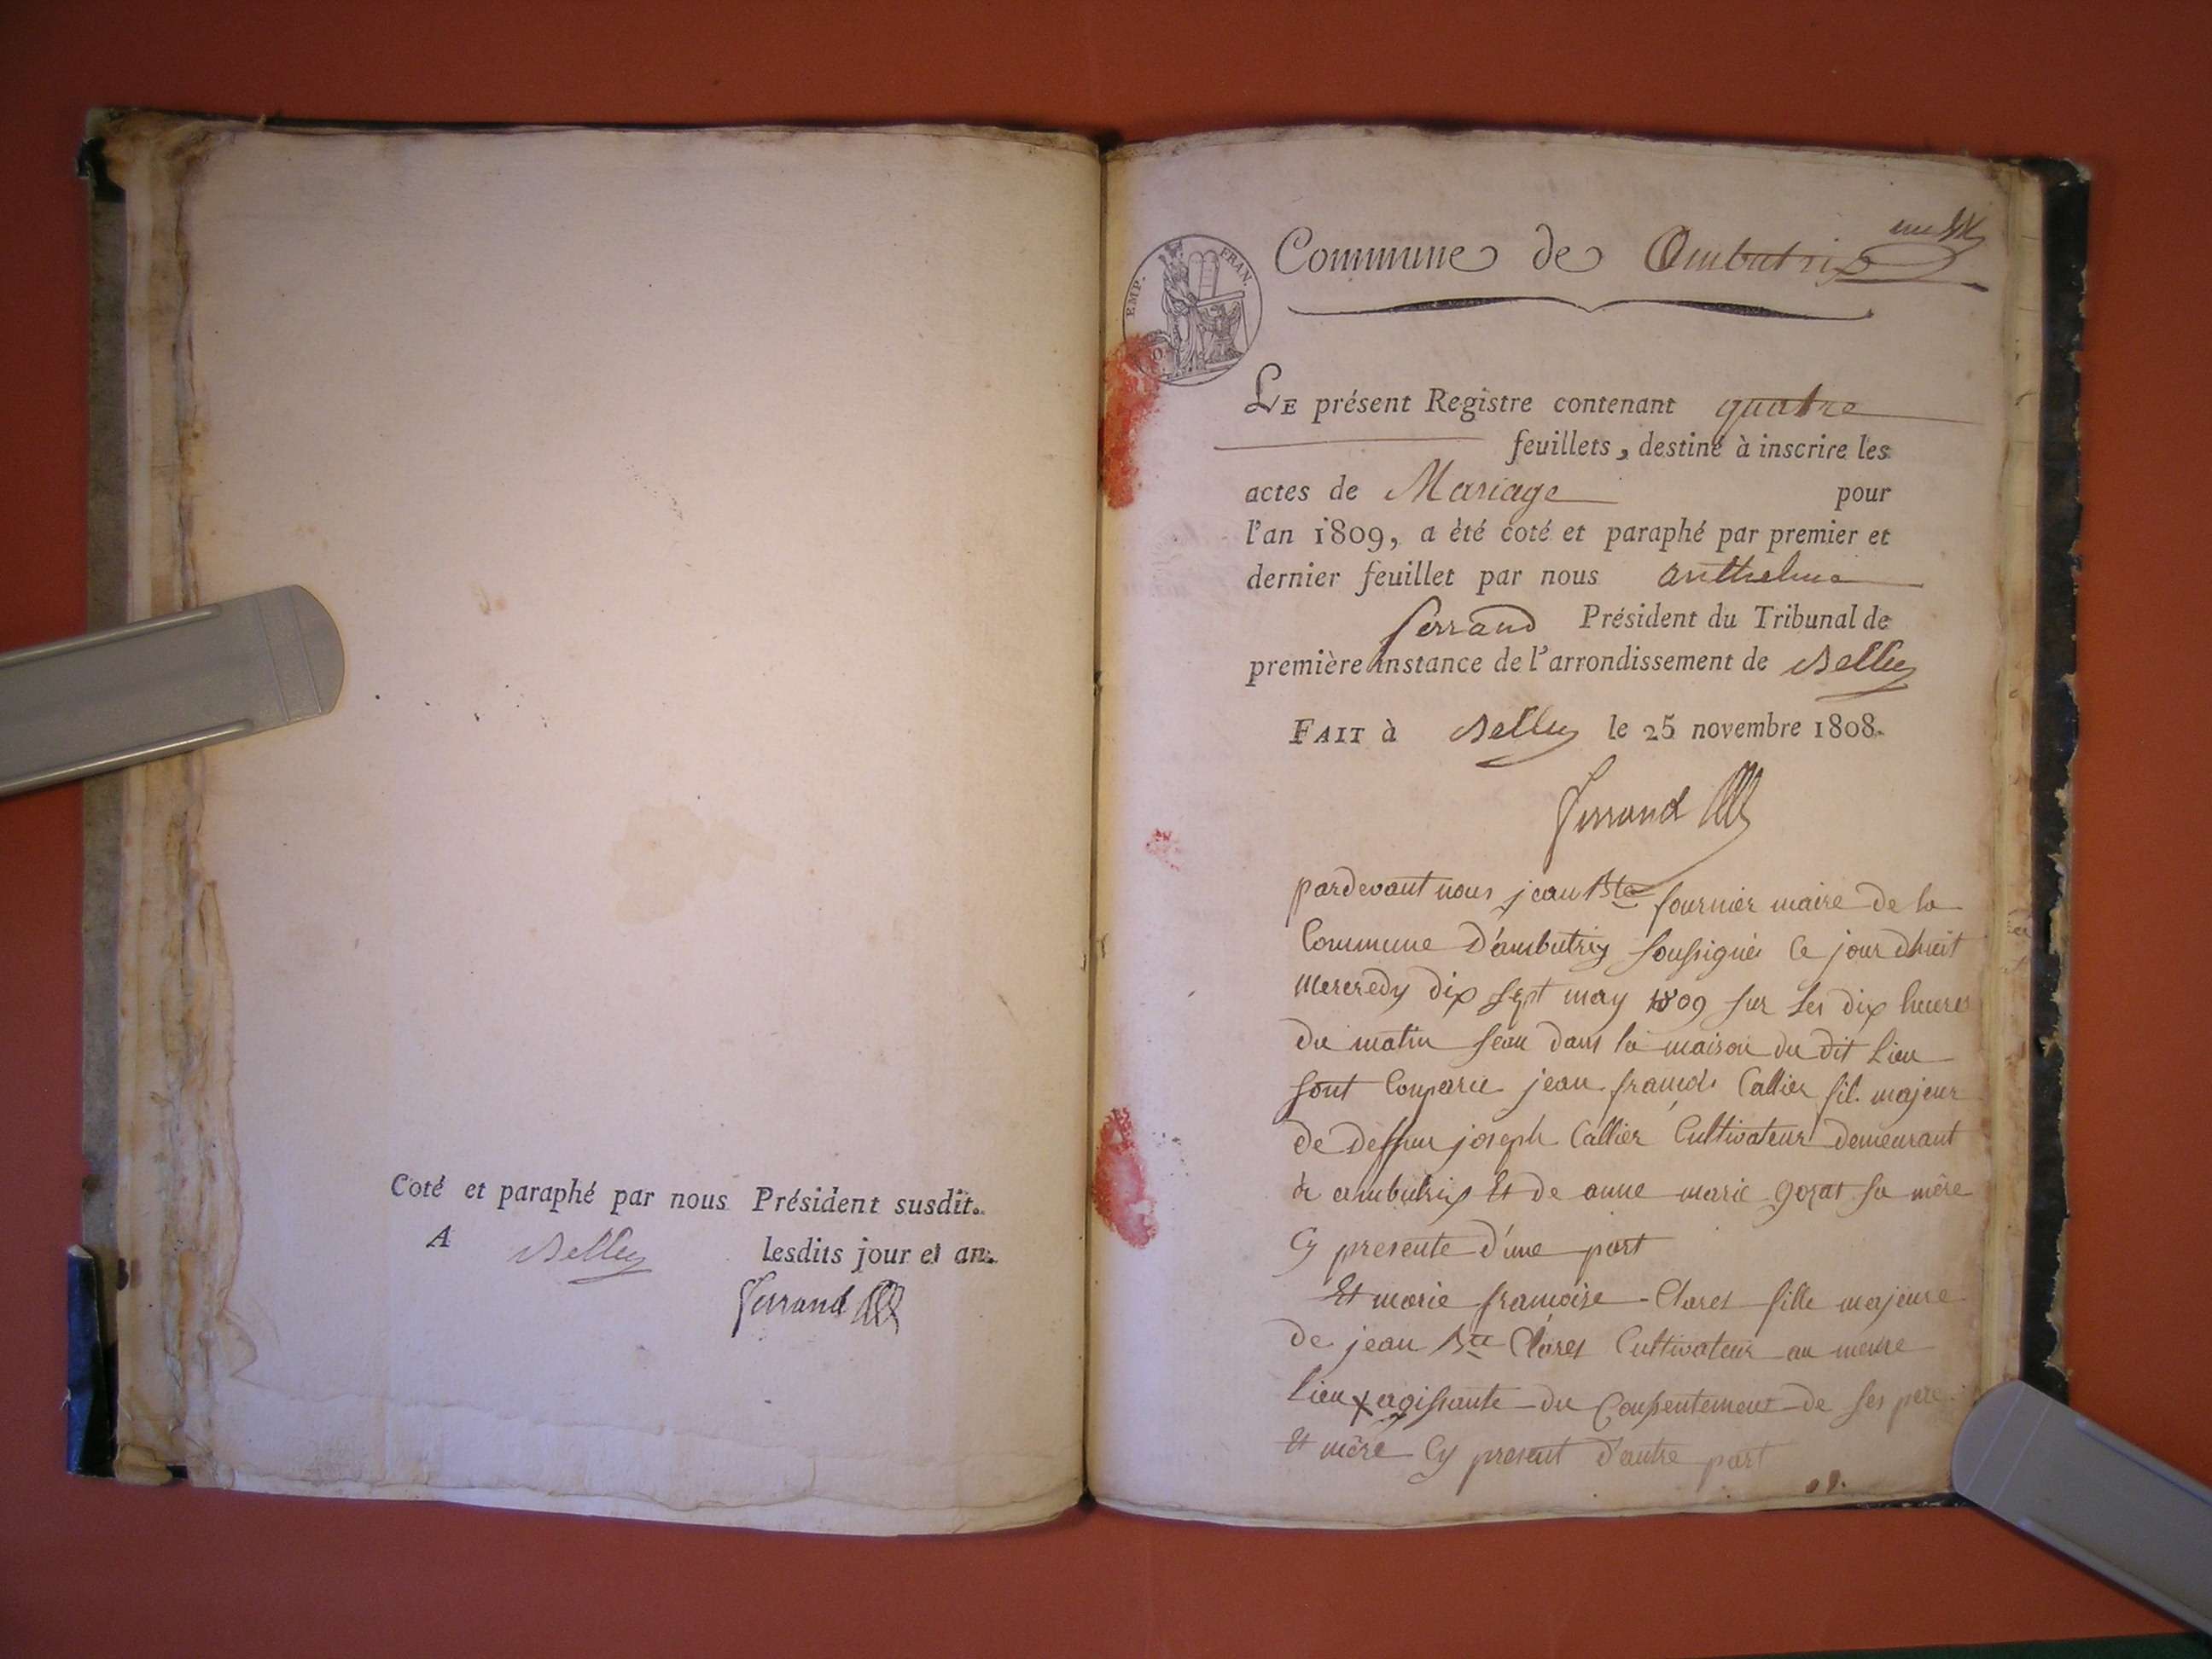 Coté et paraphé par nous Président susdit.
A Belley lesdits jour et an.
Ferrand
EMP. FRAN.
Commune de Ambutrix
LE présent Registre contenant quatre
feuillets, destiné à inscrire les
actes de Mariage pour
l'an 1809, a été coté et paraphé par premier et
dernier feuillet par nous anthelme
ferrand Président du Tribunal de
première instance de l'arrondissement de Belley
FAIT à Belley le 25 novembre 1808.
Ferrand
pardevant nous jean Bte fournier maire de la
Commune d'ambutrix soussigné ce jourdhuit
mercredy dix sept may 1809 sur les dix heures
du matin dans la maison du dit lieu
sont comparu jean francois Callier fils majeur
de deffun joseph Callier Cultivateur demeurant
à ambutrix Et de anne marie gozat sa mère
Cy presente d'une part
Et marie francoise Claret fille majeure
de jean Bte Claret Cultivateur au meme
lieu x agissante du Consentement de ses pere
Et mère Cy present d'autre part